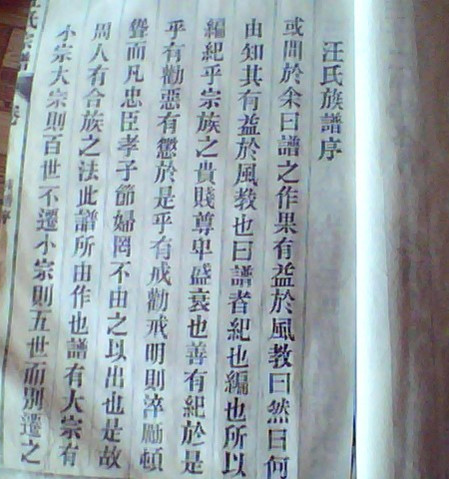 汪氏族譜序
或問於余曰譜之作果有益於風教曰然曰何
由知其有益於風教也曰譜者紀也編也所以
編紀乎宗族之貴賤尊卑盛衰也善有紀於是
乎有勸惡有懲於是乎有戒勸戒明則淬勵頓
聳而凡忠臣孝子節婦罔不由之以出也是故
周人有合族之法此譜所由作也譜有大宗有
小宗大宗則百世不遷小宗則五世而別遷之
氏宗譜 卷